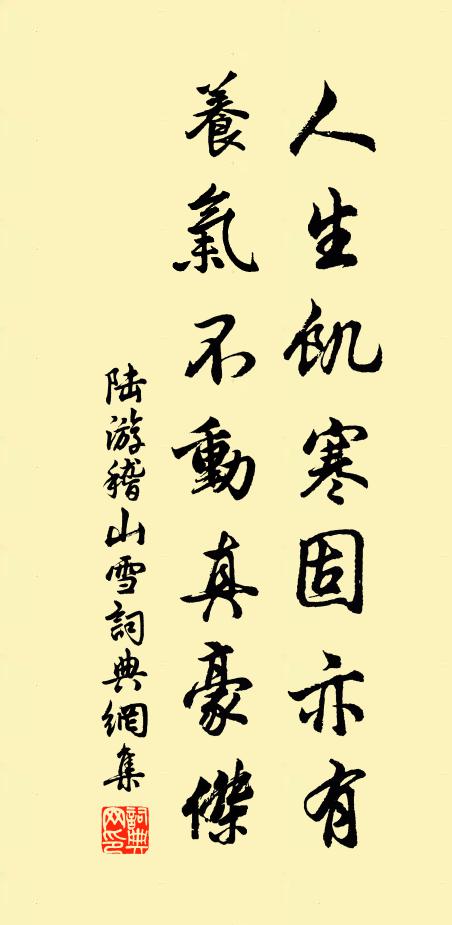 人生飢寒固亦有
養氣不動真豪傑
陆游稽山雪詞典網集
詞典網印